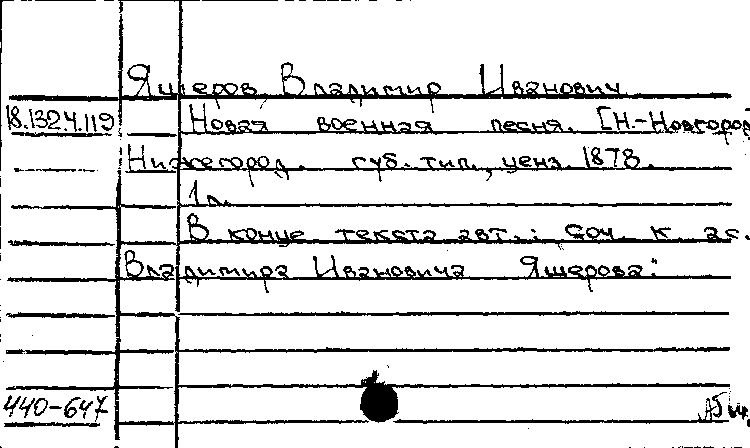 Ящеров, Владимир Иванович
18.132.4.119 Новая военная песня. [Н.-Новгород
Нижегород. губ. тип., ценз. 1878.
1 л.
В конце текста авт.: Соч. к. ас.
Владимира Ивановича Ящерова.
440-647